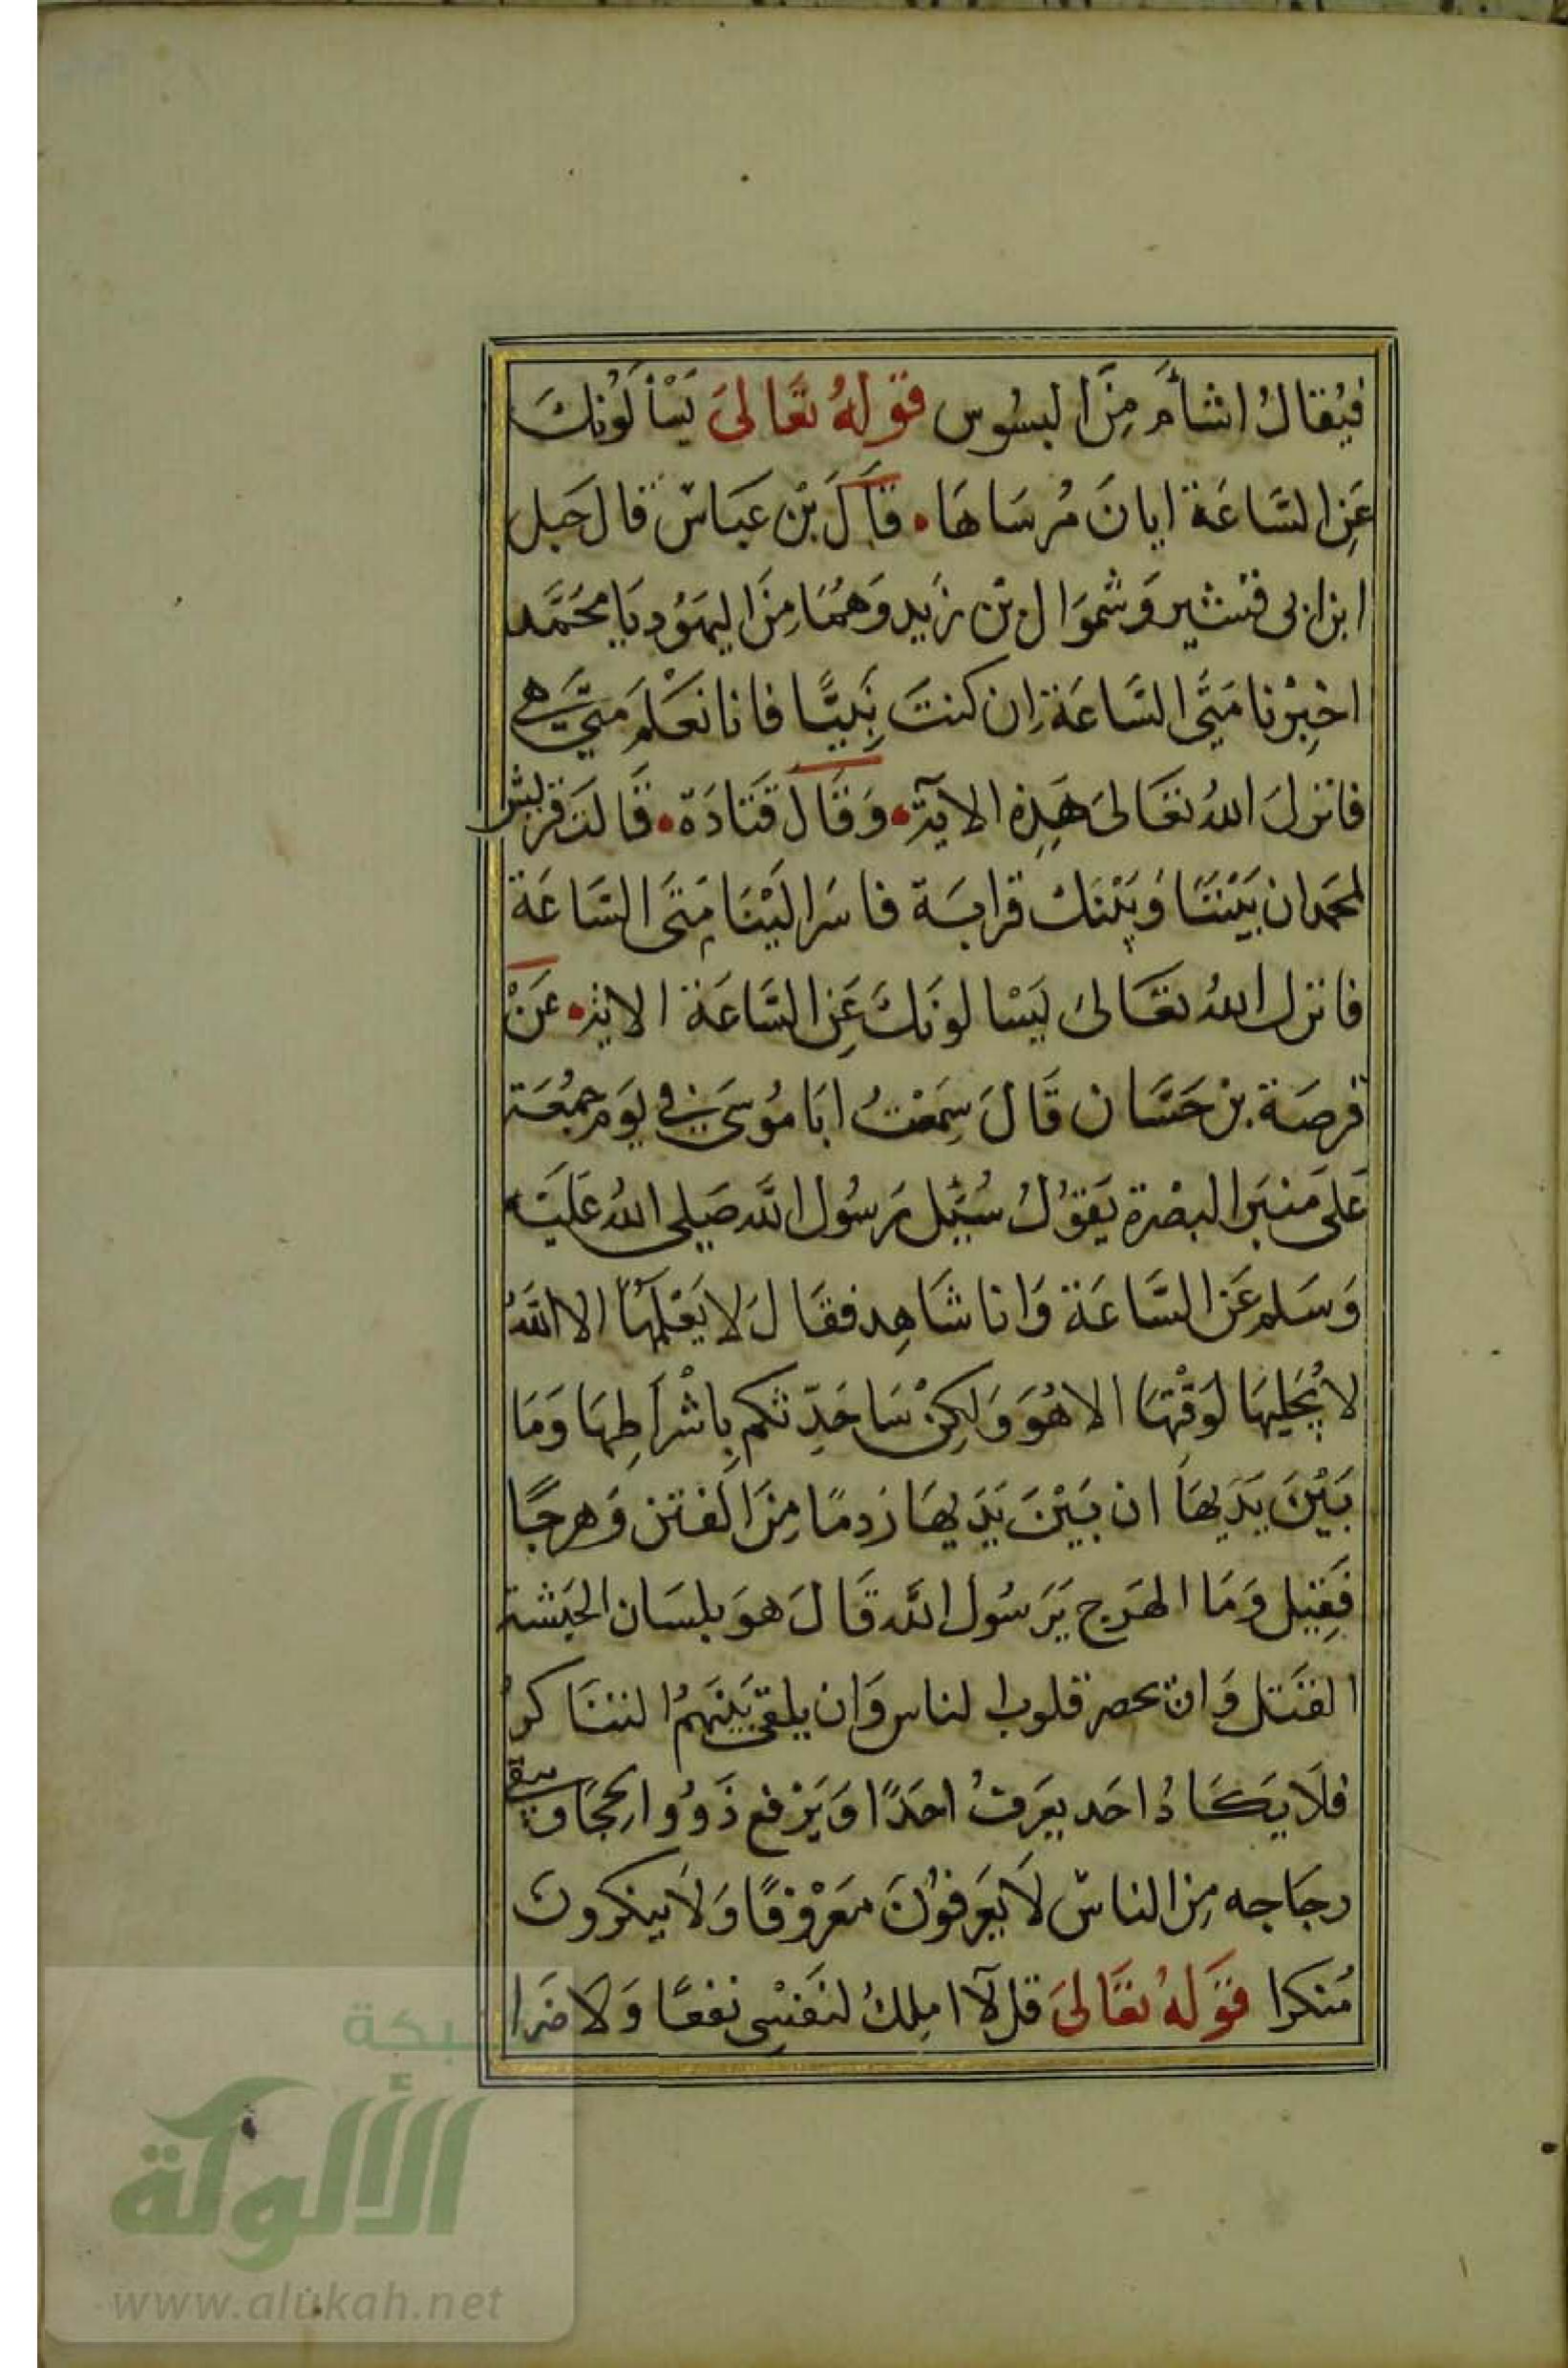 فيُقالُ اشأم مِنَ البسُوس قوله تعَالىَ يَسْأَلُونكَ
عَنِ السَّاعَة ايانَ مُرسَاهَا، قَالَ بْن عَبَاسْ قال جَبل
ابن ابى قشير وَشموَال بن زَيد وَهمَا مِنَ اليهَوُد يَا محَمَّد
اخبِرْنا مَتَى السَّاعَة ان كنتَ نَبيًّا فانا نعَلَم متَى هى
فانزلَ اللهُ تعَالىَ هَذِهِ الاية، وَقَالَ قَتَادَة، قَالت قريش
لمحمد ان بَيْننَا وَبَيْنَكَ قرابَة فاسَر اليْنَا مَتَى السَّاعَة
فانزل اللهُ تعَالىَ يَسْالونَكَ عَنِ السَّاعَة الاية، عَنْ
قرصَة بن حَسَّان قَالَ سَمِعْتُ ابَا مُوسَى فى يَوم جمُعَة
عَلى مَنبَر البصْرة يَقوُلُ سُئِلَ رَسُول الله صَلى اللهُ عَليَه
وَسَلم عَن السَّاعَة وَانا شَاهِد فقَالَ لا يَعْلمهَا الا اللهُ
لا يُجَليهَا لوَقْتهَا الا هُوَ وَلكِنْ سَاحَدِّثكم بِاشْرَاطِهَا وَمَا
بَيْنَ يَدَيهَا ان بَيْنَ يَدَيهَا رَدمًا مِنَ الفتَن وَهرجًا
فَقِيل وَمَا الهَرج يَرَسُول الله قَالَ هوَ بلسَان الحَبشة
القتَل وَان تحصر قلوب الناس وَان يلقى بَينَهمُ التنَاكرُ
فلاَ يَكَادُ احَد يعَرفُ احَدًا وَيَرْفع ذَوُوا الحجَا وَيبقى
رجَاجه مِن الناسْ لاَ يَعَرفوُنَ مَعَرْوفًا وَلاَ ينكرونَ
مُنكرا قوَلهُ تعَالىَ قل لاَ املِكُ لنَفَسِى نفعًا وَلاَ ضَرا
شبكة
الألوكة
www.alukah.net